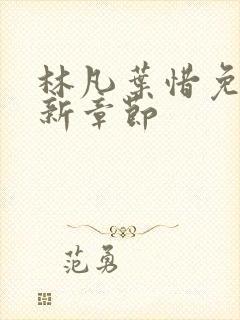 林凡叶惜免
新章节
范勇